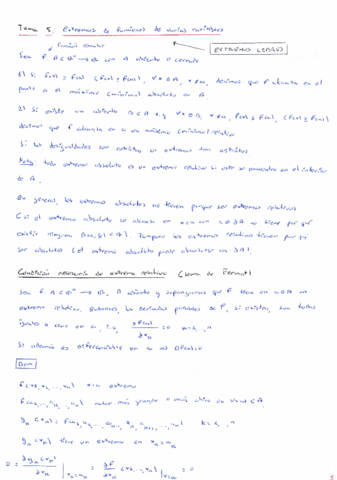 Tema 5: Extremos de funciones de varias variables
función escalar
EXTREMOS LIBRES
Sea f: A ⊂ ℝⁿ → ℝ con A abierto o cerrado
1) Si f(x) ≥ f(a) (f(x) ≤ f(a)), ∀ x ∈ A, x ≠ a, decimos que f alcanza en el
punto a el máximo (mínimo) absoluto en A
2) Si existe un abierto B ⊂ A t.q. ∀ x ∈ B, x ≠ a, f(x) ≥ f(a), (f(x) ≤ f(a))
decimos que f alcanza en a un máximo (mínimo) relativo
Si las desigualdades son estrictas los extremos son estrictos
Nota: todo extremo absoluto es un extremo relativo si este se encuentra en el interior
de A.
En general, los extremos absolutos no tienen porque ser extremos relativos
(si el extremo absoluto se alcanza en x = a con a ∈ ∂A no tiene por qué
existir ningún). Tampoco los extremos relativos tienen por qué
ser absolutos (el extremo absoluto puede alcanzarse en ∂A).
Condición necesaria de extremo relativo (Teorema de Fermat)
Sea f: A ⊂ ℝⁿ → ℝ, A abierto y supongamos que f tiene en a ∈ A un
extremo relativo. Entonces, las derivadas parciales de f, si existen, son todas
iguales a cero en a, i.e, ∂f(a)/∂xₖ = 0 k=1, n
Si además es diferenciable en a
Dem
f(x₁, x₂, ..., xₙ) x = a extremo
f(a₁, ..., aₙ) valor más grande o más chico en
gₖ(xₖ) = f(a₁, a₂, ..., aₖ₋₁, xₖ, aₖ₊₁, ..., aₙ) k=1, n
gₖ(xₖ) tiene un extremo en xₖ = aₖ
0 = ∂gₖ(xₖ)/∂xₖ |xₖ=aₖ = ∂f/∂xₖ (x₁, ..., xₙ) |x=a = 0